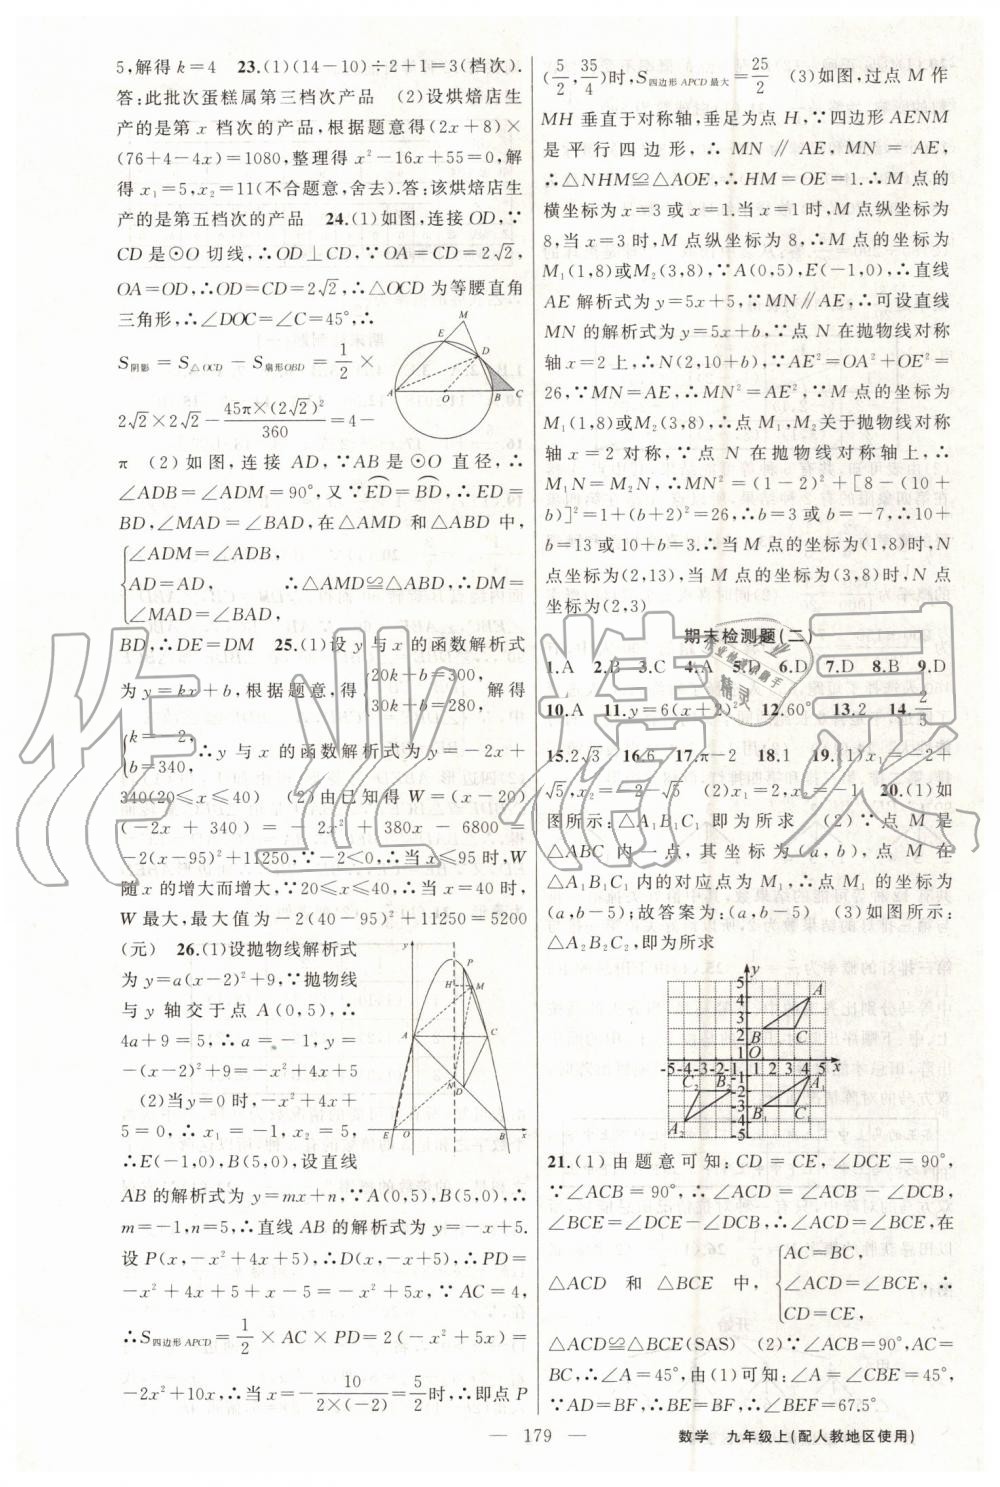 5,解得k=4　23.(1)(14-10)÷2+1=3(档次).
答:此批次蛋糕属第三档次产品　(2)设烘焙店生
产的是第x档次的产品,根据题意得(2x+8)×
(76+4-4x)=1080,整理得x²-16x+55=0,解
得x₁=5,x₂=11(不合题意,舍去).答:该烘焙店生
产的是第五档次的产品　24.(1)如图,连接OD,∵
CD是⊙O切线,∴OD⊥CD,∵OA=CD=2√2,
OA=OD,∴OD=CD=2√2,∴△OCD为等腰直角
三角形,∴∠DOC=∠C=45°,∴
S阴影=S△OCD-S扇形OBD=1/2×
2√2×2√2-45π×(2√2)²/360=4-
π　(2)如图,连接AD,∵AB是⊙O直径,∴
∠ADB=∠ADM=90°,又∵ED⌒=BD⌒,∴ED=
BD,∠MAD=∠BAD,在△AMD和△ABD中,
{∠ADM=∠ADB,
AD=AD,　∴△AMD≌△ABD,∴DM=
∠MAD=∠BAD,
BD,∴DE=DM　25.(1)设y与x的函数解析式
为y=kx+b,根据题意,得{20k+b=300, 30k+b=280,　解得
{k=-2, b=340,　∴y与x的函数解析式为y=-2x+
340(20≤x≤40)　(2)由已知得W=(x-20)
(-2x+340)=-2x²+380x-6800=
-2(x-95)²+11250,∵-2<0,∴当x≤95时,W
随x的增大而增大,∵20≤x≤40,∴当x=40时,
W最大,最大值为-2(40-95)²+11250=5200
(元)　26.(1)设抛物线解析式
为y=a(x-2)²+9,∵抛物线
与y轴交于点A(0,5),∴
4a+9=5,∴a=-1,y=
-(x-2)²+9=-x²+4x+5
(2)当y=0时,-x²+4x+
5=0,∴x₁=-1,x₂=5,
∴E(-1,0),B(5,0),设直线
AB的解析式为y=mx+n,∵A(0,5),B(5,0),∴
m=-1,n=5,∴直线AB的解析式为y=-x+5.
设P(x,-x²+4x+5),∴D(x,-x+5),∴PD=
-x²+4x+5+x-5=-x²+5x,∵AC=4,
∴S四边形APCD=1/2×AC×PD=2(-x²+5x)=
-2x²+10x,∴当x=-10/(2×(-2))=5/2时,∴即点P
(5/2,35/4)时,S四边形APCD最大=25/2　(3)如图,过点M作
MH垂直于对称轴,垂足为点H,∵四边形AENM
是平行四边形,∴MN∥AE,MN=AE,
∴△NHM≌△AOE,∴HM=OE=1.∴M点的
横坐标为x=3或x=1.当x=1时,M点纵坐标为
8,当x=3时,M点纵坐标为8,∴M点的坐标为
M₁(1,8)或M₂(3,8),∵A(0,5),E(-1,0),∴直线
AE解析式为y=5x+5,∵MN∥AE,∴可设直线
MN的解析式为y=5x+b,∵点N在抛物线对称
轴x=2上,∴N(2,10+b),∵AE²=OA²+OE²=
26,∵MN=AE,∴MN²=AE²,∵M点的坐标为
M₁(1,8)或M₂(3,8),∴点M₁,M₂关于抛物线对称
轴x=2对称,∵点N在抛物线对称轴上,∴
M₁N=M₂N,∴MN²=(1-2)²+[8-(10+
b)]²=1+(b+2)²=26,∴b=3或b=-7,∴10+
b=13或10+b=3.∴当M点的坐标为(1,8)时,N
点坐标为(2,13),当M点的坐标为(3,8)时,N点
坐标为(2,3)
期末检测题(二)
1.A　2.B　3.C　4.A　5.D　6.D　7.D　8.B　9.D
10.A　11.y=6(x+2)²　12.60°　13.2　14.2/5
15.2√3　16.6　17.π-2　18.1　19.(1)x₁=-2+
√5,x₂=-2-√5　(2)x₁=2,x₂=-1　20.(1)如
图所示:△A₁B₁C₁即为所求　(2)∵点M是
△ABC内一点,其坐标为(a,b),点M在
△A₁B₁C₁内的对应点为M₁,∴点M₁的坐标为
(a,b-5);故答案为:(a,b-5)　(3)如图所示:
△A₂B₂C₂,即为所求
21.(1)由题意可知:CD=CE,∠DCE=90°,
∵∠ACB=90°,∴∠ACD=∠ACB-∠DCB,
∠BCE=∠DCE-∠DCB,∴∠ACD=∠BCE,在
△ACD和△BCE中,{AC=BC, ∠ACD=∠BCE, CD=CE,　∴
△ACD≌△BCE(SAS)　(2)∵∠ACB=90°,AC=
BC,∴∠A=45°,由(1)可知:∠A=∠CBE=45°,
∵AD=BF,∴BE=BF,∴∠BEF=67.5°
— 179 —　数学　九年级上(配人教地区使用)
作业精灵